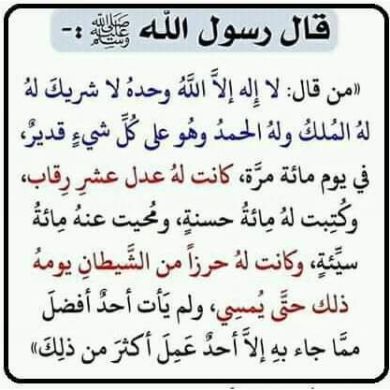 قال رسول الله ﷺ :-
«من قال: لا إِله إلاَّ اللَّهُ وحدهُ لا شريكَ لهُ
لهُ المُلكُ ولهُ الحمدُ وهُو على كُلِّ شيءٍ قديرٌ،
في يوم مائة مرَّة، كانت لهُ عدل عشرِ رِقاب،
وكُتِبت لهُ مِائةُ حسنةٍ، ومُحيت عنهُ مِائةُ
سيِّئةٍ، وكانت لهُ حرزاً من الشَّيطانِ يومهُ
ذلك حتَّى يُمسِي، ولم يَأت أحدٌ أفضلَ
ممَّا جاء بهِ إلاَّ أحدٌ عَمِلَ أكثرَ من ذلِكَ»